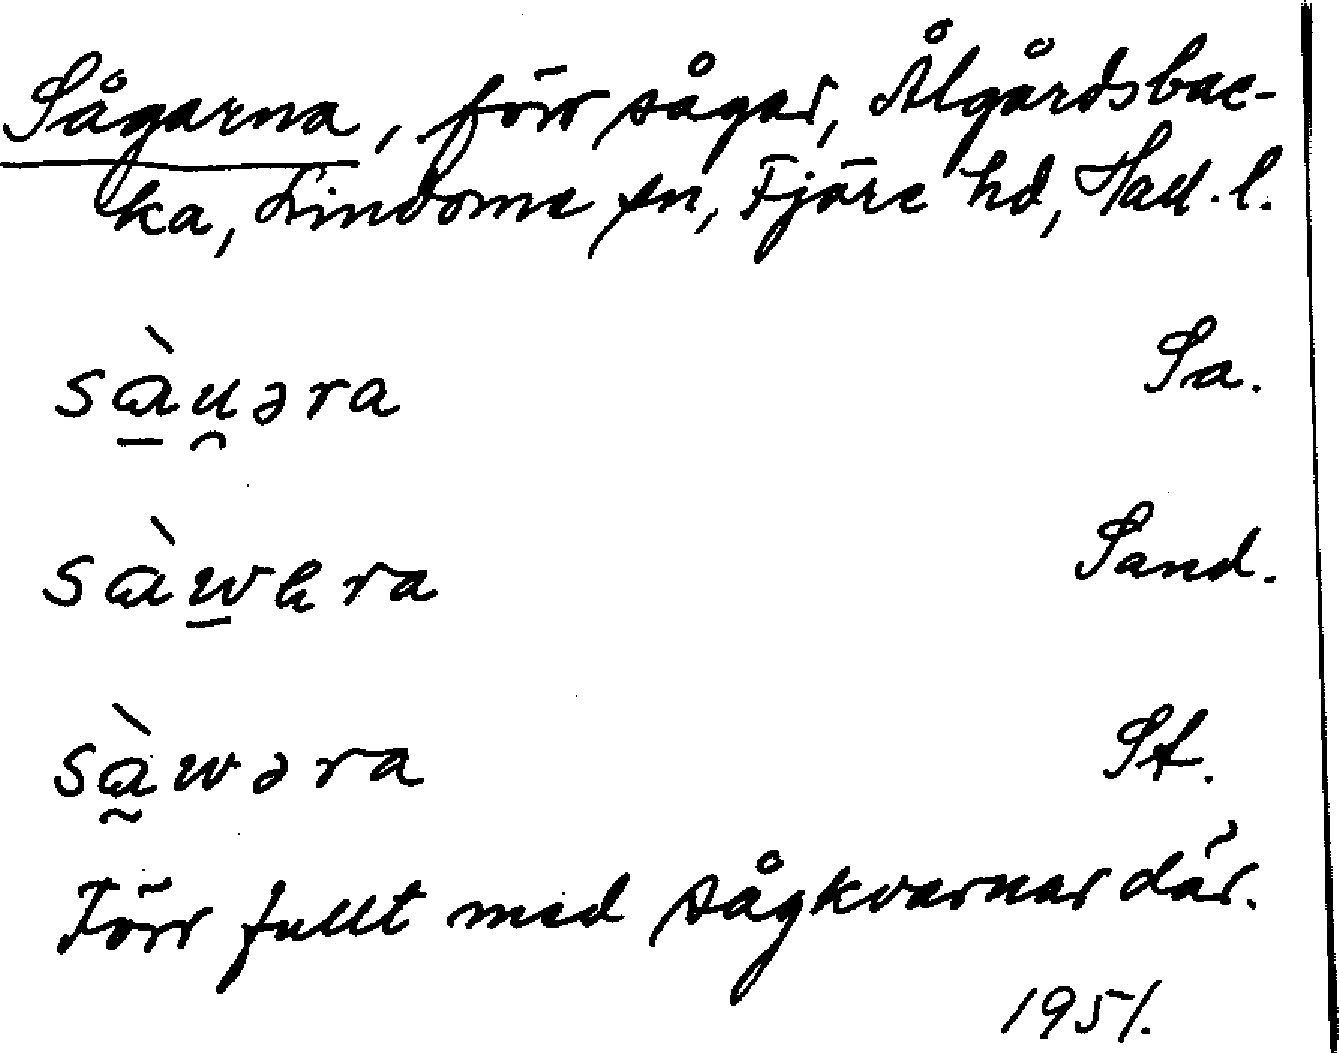 Sågarna, förr sågar, Ålgårdsbac-
ka, Lindome sn, Fjäre hd, Hall. l.
sɑ̱̀u̯əra Sa.
sɑ̀w̱ɐra Sand.
sɑ̰̀wəra St.
Förr fullt med sågkvarnar där.
1951.